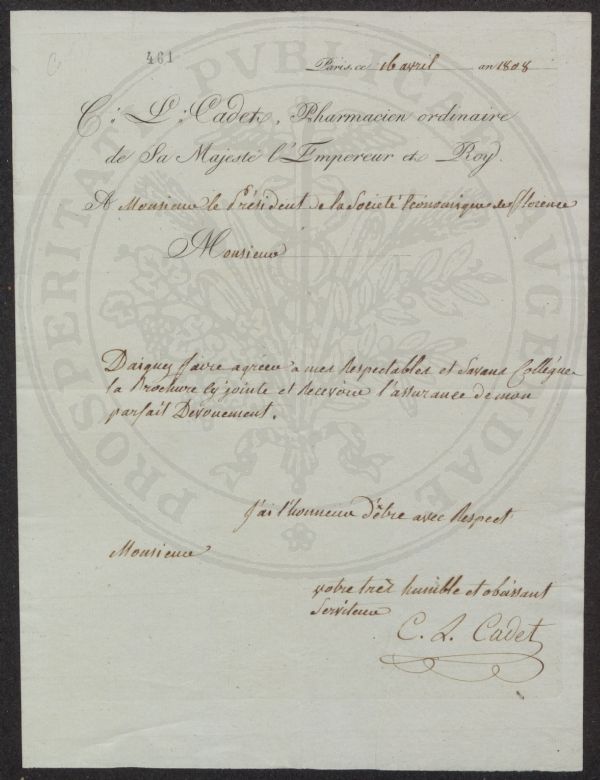 461
Paris, ce 16 avril an 1808
C. L. Cadet, Pharmacien ordinaire
de Sa Majesté l'Empereur et Roy.
A Monsieur le Président de la Société Economique de florence
Monsieur
Daignez faire agréer à mes Respectables et Savans Collègues
la Brochure cy jointe et Recevoir l'assurance de mon
parfait Dévouement.
J'ai l'honneur d'être avec Respect
Monsieur
votre très humble et obéissant
Serviteur
C. L. Cadet
PROSPERITATI PVBLICAE AVGENDAE